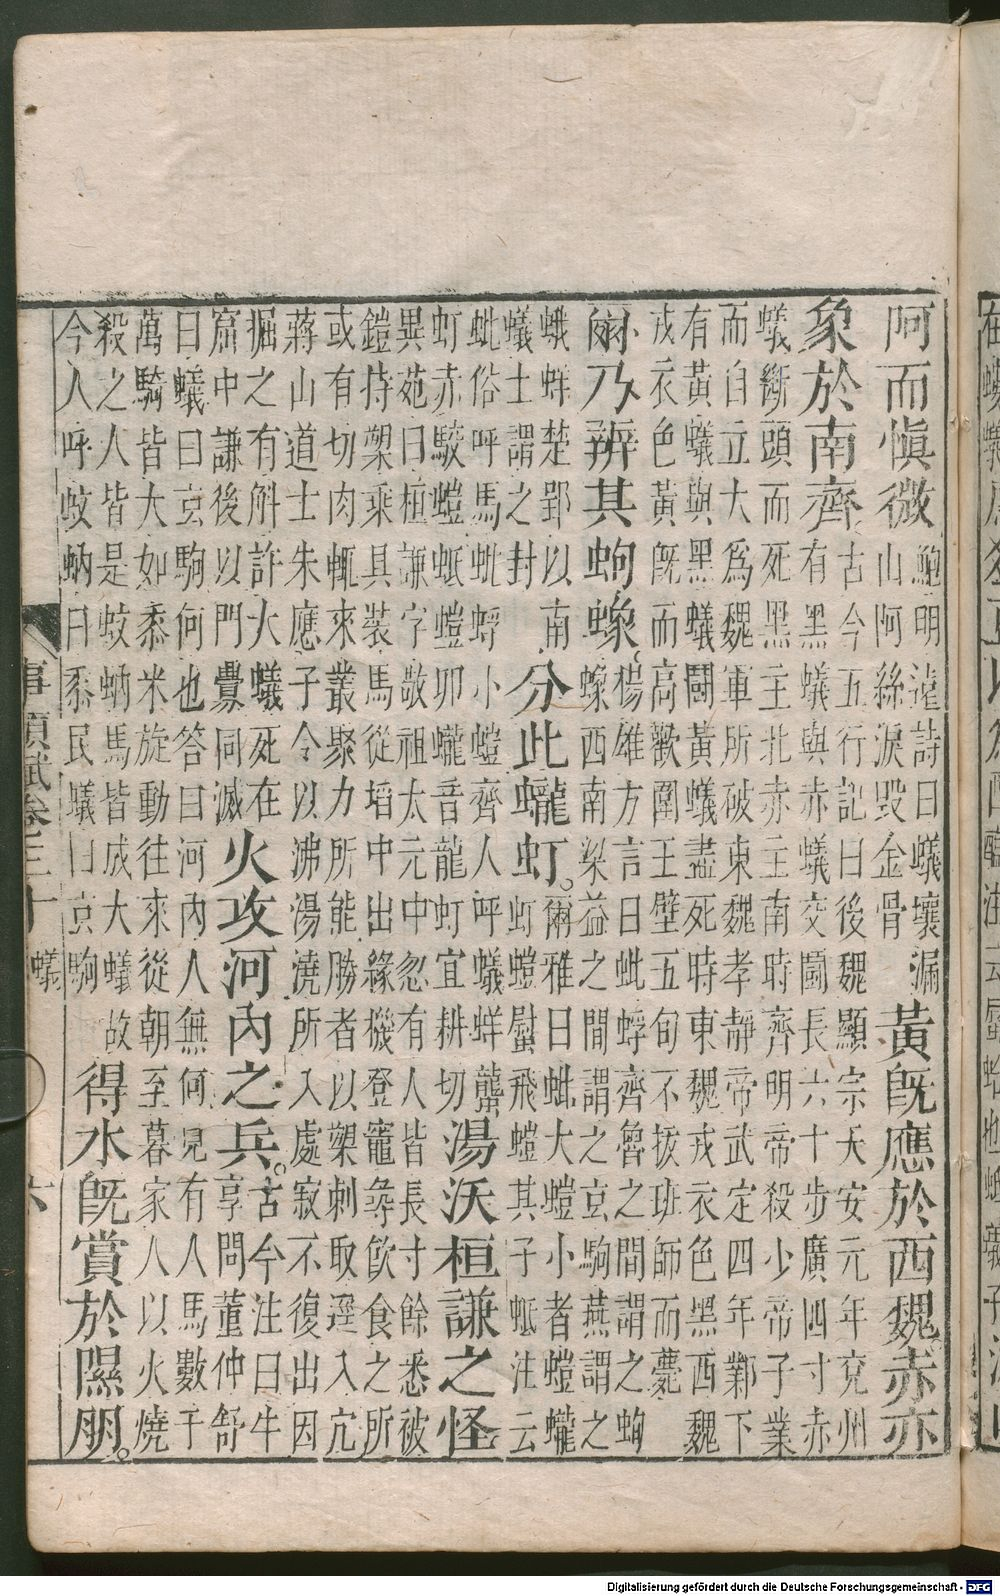 阿而慎微
鮑明遠詩曰蟻壤漏
山阿絲淚毀金骨
黃旣應於西魏赤亦
象於南齊
古今五行記曰後魏顯宗天安元年兗州
有黑蟻與赤蟻交鬭長六十步廣四寸赤
蟻斷頭而死黑主北赤主南時齊明帝殺少帝子業
而自立大爲魏軍所破東魏孝靜帝武定四年鄴下
有黃蟻與黑蟻鬭黃蟻盡死時東魏戎衣色黑西魏
戎衣色黃旣而高歡圍王壁五旬不拔班師而薨
爾乃辨其蚼蟓
楊雄方言曰蚍蜉齊魯之間謂之蚼
蟓西南梁益之間謂之玄駒燕謂之
蛾蛘楚郢以南
蟻土謂之封
分此蠬虰。
爾雅曰蚍大螘小者螘蠬
虰螘蟚飛螘其子蚳注云
蚍俗呼馬蚍蜉小螘齊人呼蟻蛘蠪
虰赤駮螘蚳螘卵蠬音龍虰宜耕切
湯沃桓謙之怪
異苑曰桓謙字敬祖太元中忽有人皆長寸餘悉被
鎧持槊乘具裝馬從埳中出緣機登竈尋飲食之所
或有切肉輒來叢聚力所能勝者以槊刺取逕入穴
蔣山道士朱應子令以沸湯澆所入處寂不復出因
掘之有斛許大蟻死在
窟中謙後以門釁同滅
火攻河內之兵。
古今注曰牛
享問董仲舒
曰蟻曰玄駒何也答曰河內人無何見有人馬數千
萬騎皆大如黍米旋動往來從朝至暮家人以火燒
殺之人皆是蚊蚋馬皆成大蟻故
今人呼蚊蚋曰黍民蟻曰玄駒
得水旣賞於隰朋。
事類賦卷三十 蟻 六
Digitalisierung gefördert durch die Deutsche Forschungsgemeinschaft - DFG